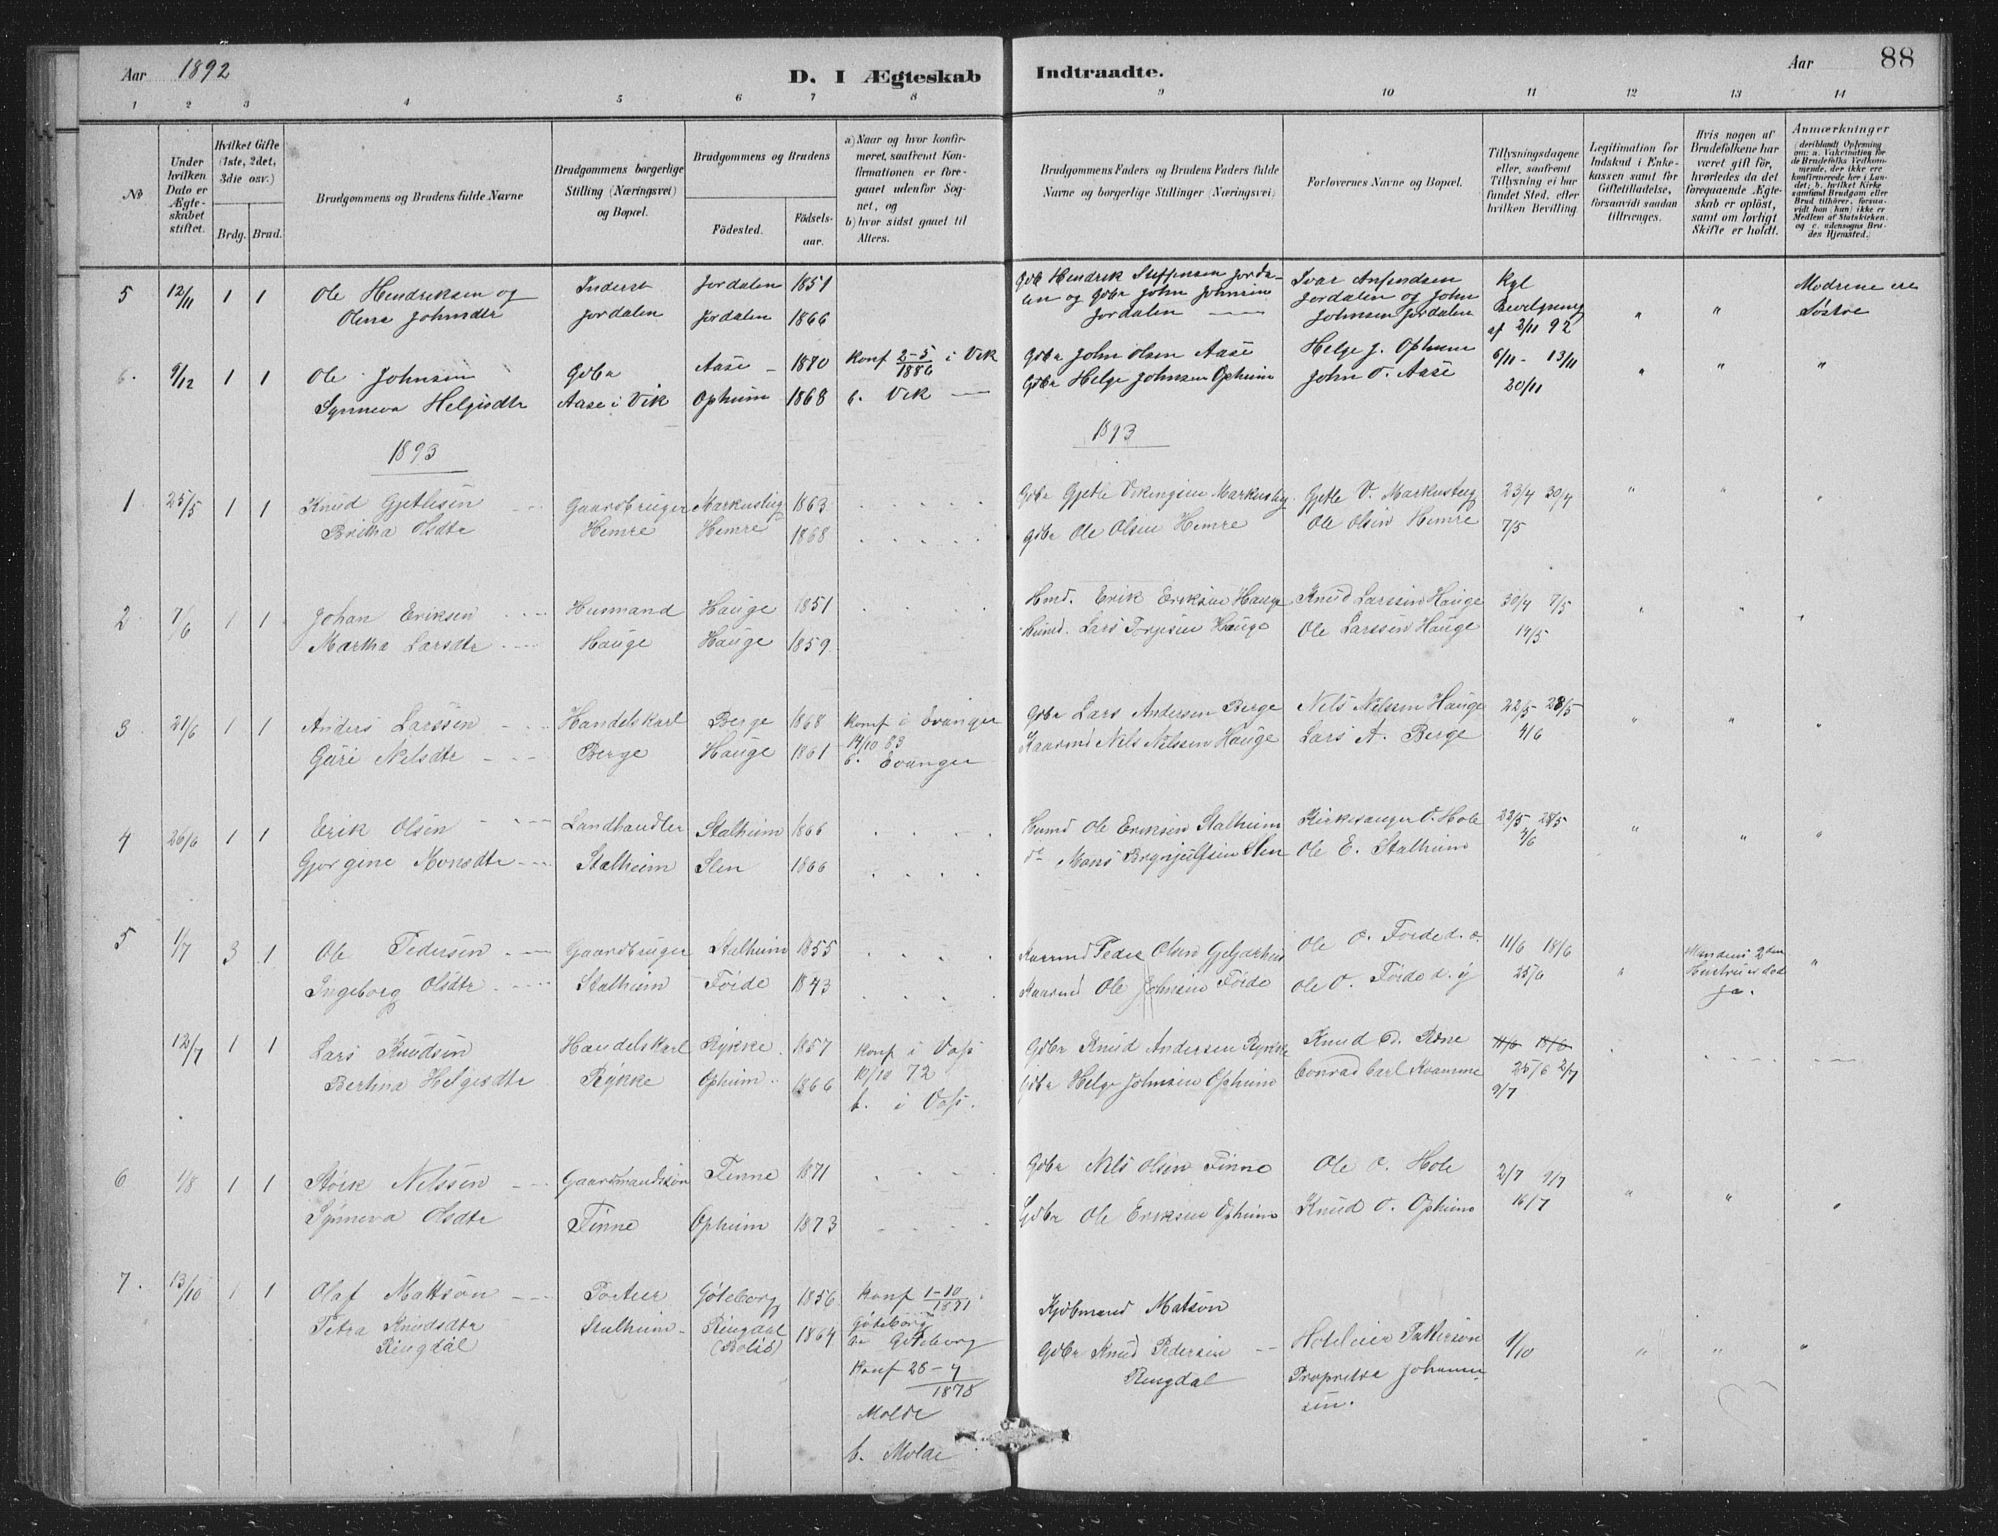 Aar 1892 D. I Ægteskab Indtraadte. Aar 88
1 2 3 4 5 6 7 8 9 10 11 12 13 14
№
Under hvilken Dato er Ægteskabet stiftet.
Hvilket Gifte (1ste, 2det, 3die osv.)
Brdg. Brud.
Brudgommens og Brudens fulde Navne
Brudgommens borgerlige Stilling (Næringsvei) og Bopæl.
Brudgommens og Brudens
Fødested. Fødselsaar.
a) Naar og hvor konfirmeret, saafremt Konfirmationen er foregaaet udenfor Sognet, og
b) hvor sidst gaaet til Alters.
Brudgommens Faders og Brudens Faders fulde Navne og borgerlige Stillinger (Næringsvei.)
Forlovernes Navne og Bopæl.
Tillysningsdagene eller, saafremt Tillysning ei har fundet Sted, efter hvilken Bevilling.
Legitimation for Indskud i Enkekassen samt for Giftetilladelse, forsaavidt saadan tiltrænges.
Hvis nogen af Brudefolkene har været gift før, hvorledes da det foregaaende Ægteskab er opløst, samt om lovligt Skifte er holdt.
Anmærkninger
5 12/11 1 1 Ole Hendriksen og Inderst Jordalen 1851 Gdbr Hendrik Steffensen Jorda- Ivar Anfindsen Kgl Mødrene ere
Olina Johnsdtr Jordalen Jordalen 1866 len og Gdbr John Johnsen Jordalen Jordalen og John Johnsen Jordalen Bevilgning af 2/11 92 " " Søstre
6. 9/12 1 1 Ole Johnsen Gdbr Aase 1870 Konf 2-5/1886 i Vik Gdbr John Olsen Aase Helge J. Opheim 6/11 - 13/11 " " "
Synneva Helgesdtr Aase i Vik Opheim 1868 b. Vik Gdbr Helge Johnsen Opheim John O. Aase 20/11
1893 1893
1 25/5 1 1 Knud Gjetlesen Gaardbruger Markusteig 1863 Gdbr Gjetle Vikingsen Markusteig Gjetle V. Markusteig 23/4 30/4 " " "
Britha Olsdtr Hemre Hemre 1868 Gdbr Ole Olsen Hemre Ole Olsen Hemre 7/5
2 7/6 1 1 Johan Eriksen Husmand Hauge 1851 Hmd. Erik Eriksen Hauge Knud Larssen Hauge 30/4 7/5 " " "
Martha Larsdtr Hauge Hauge 1859 Husmd. Lars Torjesen Hauge Ole Larssen Hauge 14/5
3 21/6 1 1 Anders Larssen Handelskarl Berge 1868 Konf i Evanger Gdbr Lars Andersen Berge Nels Nelssen Hauge 22/5 28/5 " " "
Guri Nelsdtr Berge Hauge 1861 14/10 83 b. Evanger Kaarmd Nels Nelssen Hauge Lars A. Berge 4/6
4 26/6 1 1 Erik Olsen Landhandler Stalheim 1866 Husmd Ole Eriksen Stalheim Kirkesanger O. Hole 22/5 28/5 " " "
Gjørgine Monsdtr Stalheim Slen 1866 do Mons Brynjulfsen Slen Ole E. Stalheim 4/6
5 1/7 3 1 Ole Pedersen Gaardbruger Stalheim 1855 Kaarmd Peder Olsen Ole O. Førde d. æ. 11/6 18/6 " Mandens 2den Hustru er død "
Ingeborg Olsdtr Stalheim Førde 1843 Kaarmd Ole Johnsen Førde Ole O. Førde d. y 25/6 Ja.
12/7 1 1 Lars Knudsen Handelskarl Rykke 1857 Konf i Voss Gdbr Knud Andersen Rykke Knud 11/6 18/6
Bertina Helgesdtr Rykke Opheim 1866 10/10 72 Gdbr Helge Johnsen Opheim Conrad Carl Kvamme 25/6 2/7
b. i Voss. 9/7
6 1/8 1 1 Størk Nelssen Gaardmandssøn Finne 1871 Gdbr Nels Olsen Finne Ole O. Hole 2/7 9/7 " " "
Synneva Olsdtr Finne Opheim 1873 Gdbr Ole Eriksen Opheim Knud O. Opheim 16/7
7. 13/10 1 1 Olaf Mattson Portier Gøteborg 1856 Konf 1-10/1871 Kjøbmand Matson
Petra Knudsdtr Stalheim Ringdal 1864 Gøteborg Gdbr Knud Pedersen Hoteleier Patterson 1/10 " " "
Ringdal (Bolsø) b. Gøteborg Ringdal Johannessen.
Konf 28-4/1878
Molde
b. Molde